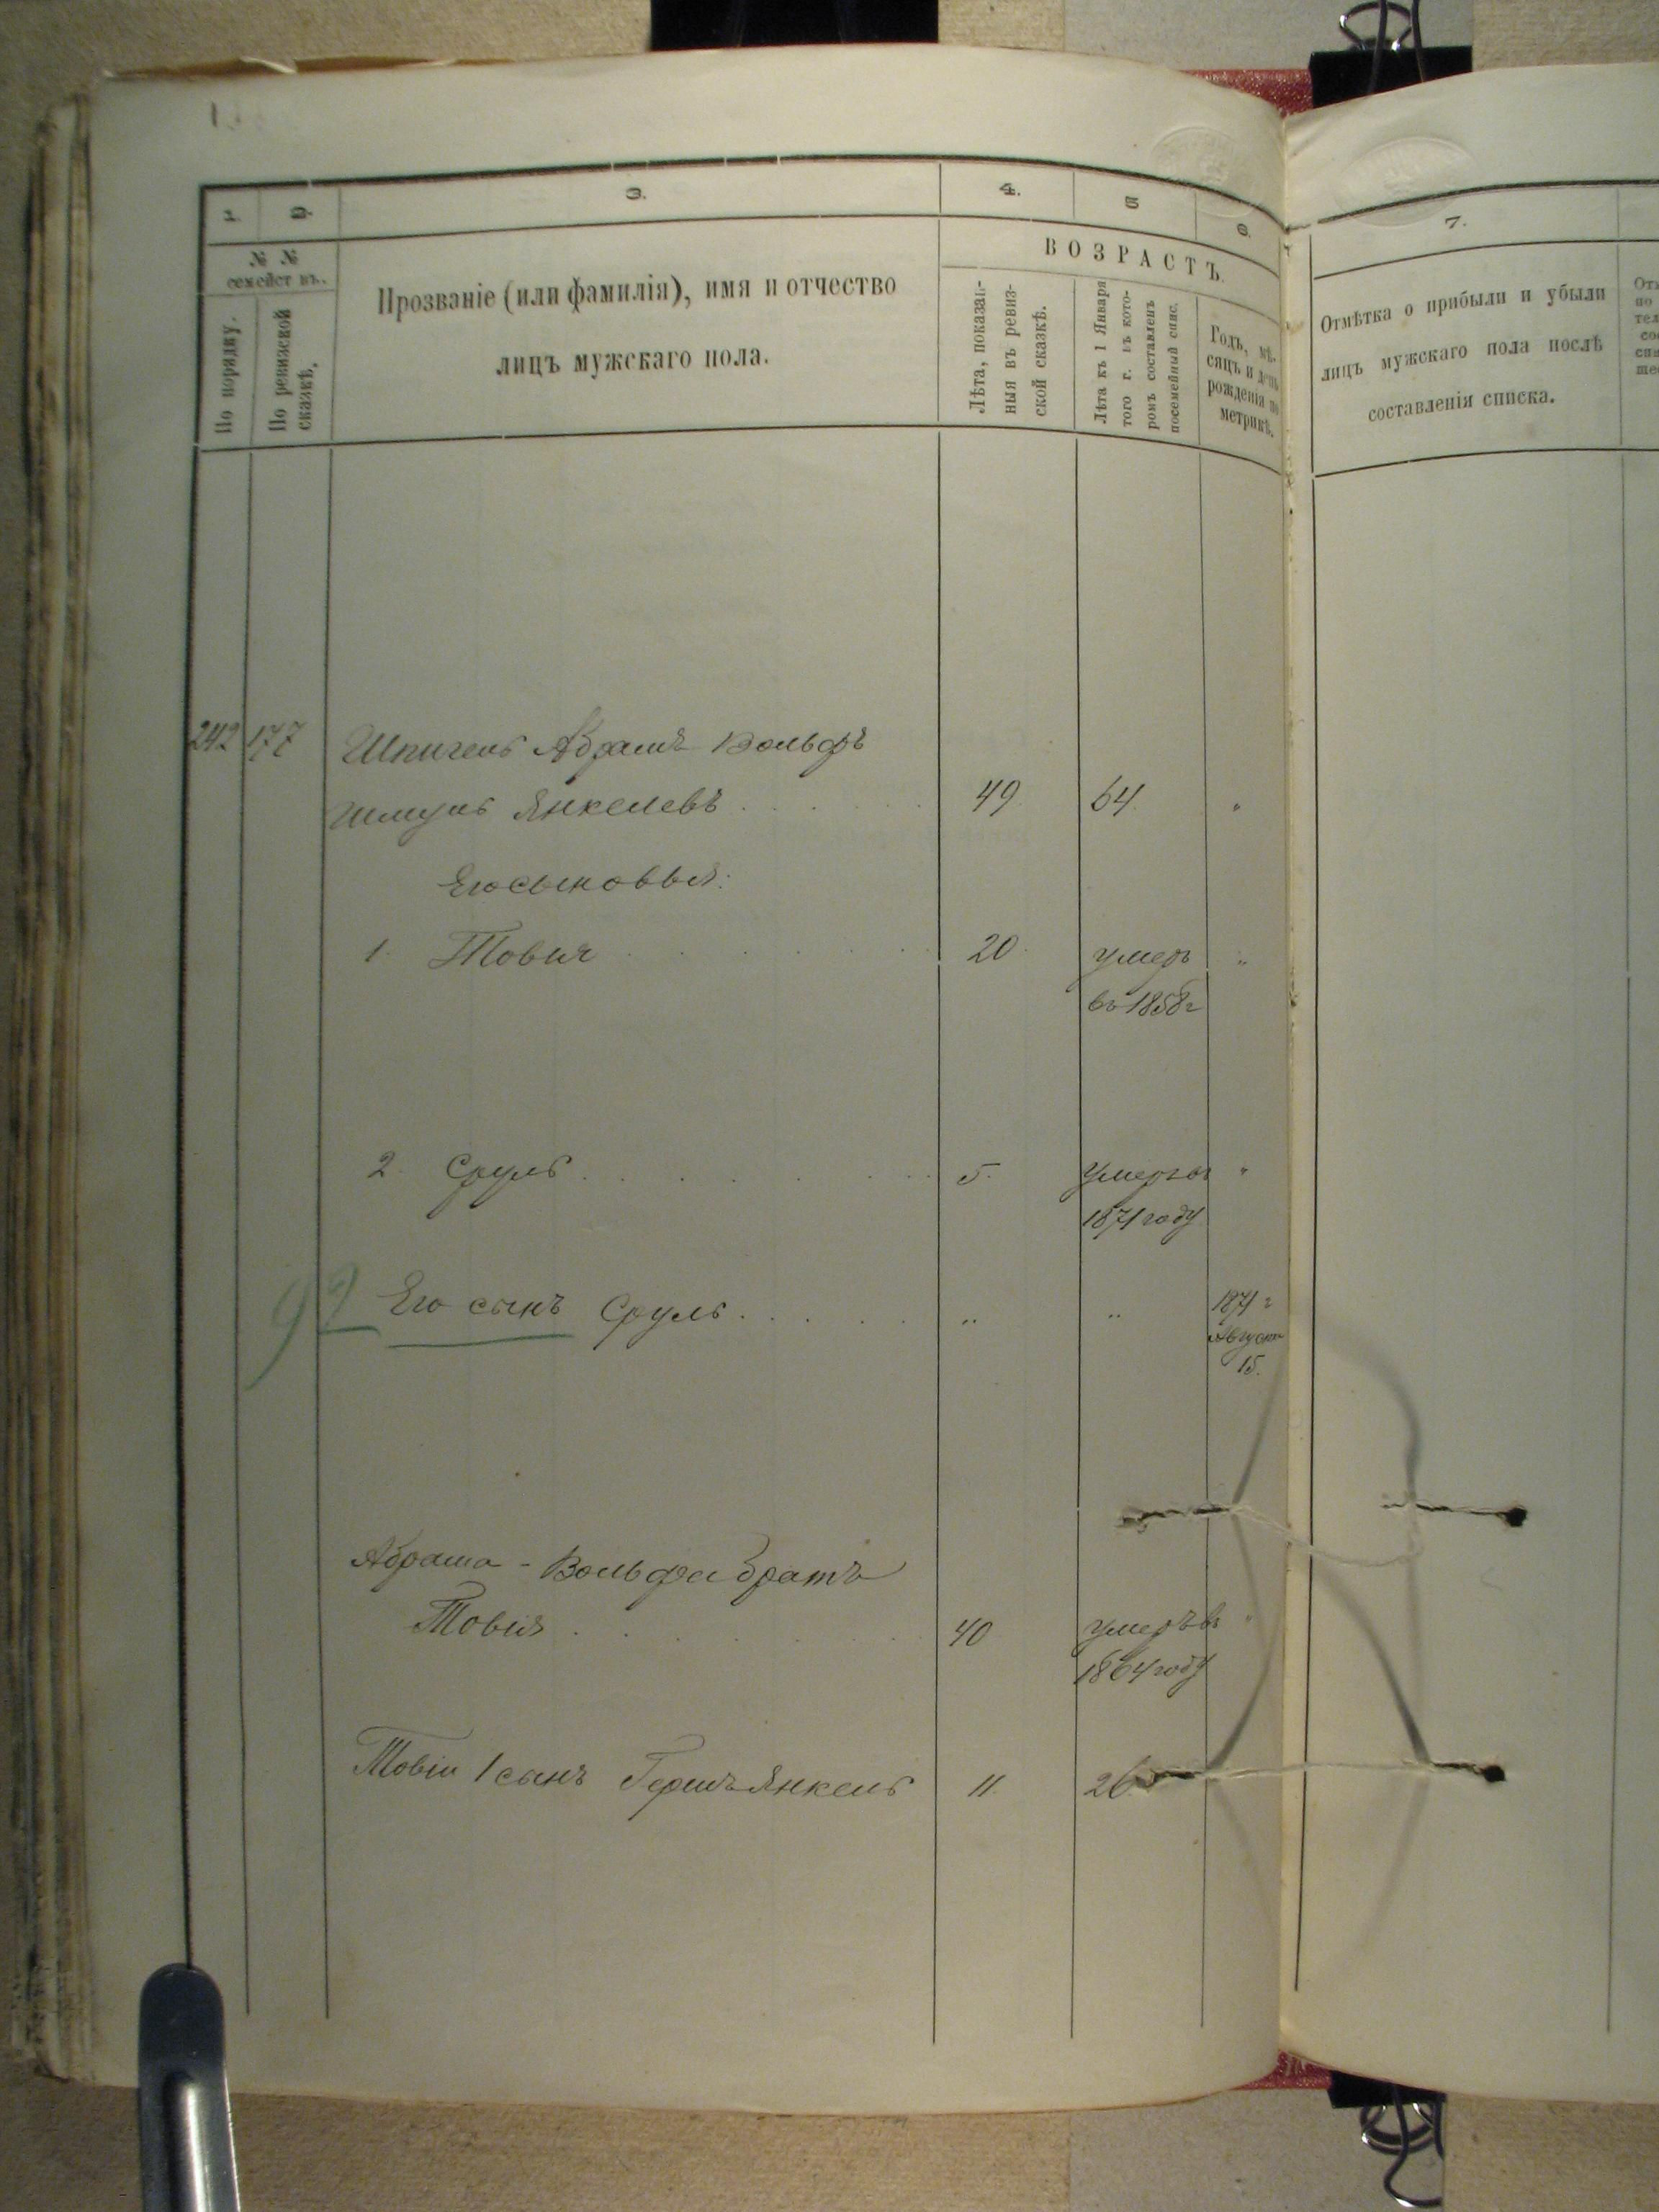 1. 2. 3. 4. 5 6. 7.
№ №
семействъ.
По порядку.
По ревизской
сказкѣ.
Прозваніе (или фамилія), имя и отчество
лицъ мужскаго пола.
ВОЗРАСТЪ.
Лѣта, показан-
ныя въ ревиз-
ской сказкѣ.
Лѣта къ 1 Января
того г. въ кото-
ромъ составленъ
посемейный спис.
Годъ, мѣ-
сяцъ и день
рожденія по
метрикѣ.
Отмѣтка о прибыли и убыли
лицъ мужскаго пола послѣ
составленія списка.
242 177 Шпигель Абрамъ Вольфъ
Шмуль Янкелевъ . . . . . 49. 64. "
Его сыновья:
1. Товія . . . . . . 20. умеръ "
въ 1858 г
2. Сруль . . . . . . 5. умеръ въ "
1871 году
92 Его сынъ Сруль . . . . . " " 1871 г
Августа
15.
Абрама-Вольфа братъ
Товія . . . . . 40 умеръ въ "
1864 году
Товіи 1 сынъ Гершъ Янкель 11. 26.